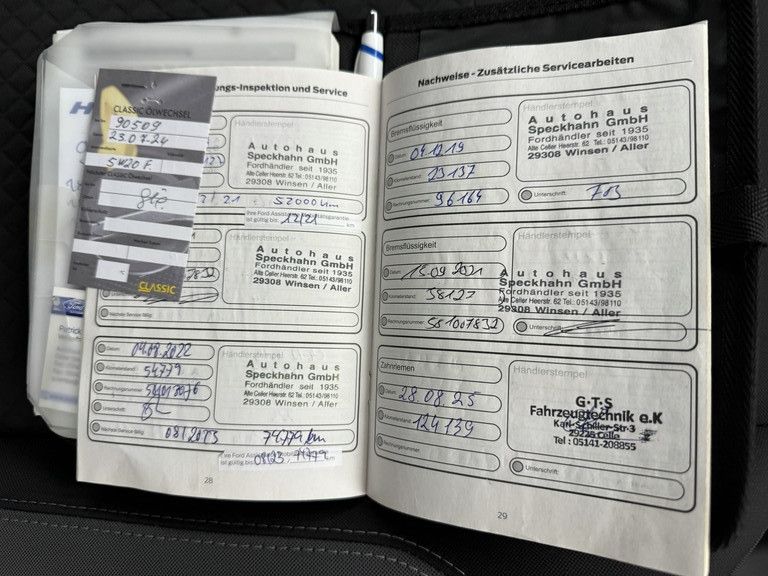 CLASSIC ÖLWECHSEL
90509
23.07.24
5W20 F.
CLASSIC
ungs-Inspektion und Service
Händlerstempel
Autohaus
Speckhahn GmbH
Fordhändler seit 1935
Alte Celler Heerstr. 62 Tel.: 05143/98110
29308 Winsen / Aller
52000 km
Ihre Ford Assistance Mobilitätsgarantie
ist gültig bis: 12/21 km
Autohaus
Speckhahn GmbH
Fordhändler seit 1935
Alte Celler Heerstr. 62 Tel.: 05143/98110
29308 Winsen / Aller
Nächste Service fällig:
Datum: 04.08.2022
Kilometerstand: 54779
Rechnungsnummer:
Unterschrift:
Händlerstempel
Autohaus
Speckhahn GmbH
Fordhändler seit 1935
Alte Celler Heerstr. 62 Tel.: 05143/98110
29308 Winsen / Aller
Nächste Service fällig: 08/2023 74779 km
ist gültig bis: 08/23 74779 km
28
Nachweise - Zusätzliche Servicearbeiten
Bremsflüssigkeit
Datum: 04.12.19
Kilometerstand: 23137
Rechnungsnummer: 96164
Händlerstempel
Autohaus
Speckhahn GmbH
Fordhändler seit 1935
Alte Celler Heerstr. 62 Tel.: 05143/98110
29308 Winsen / Aller
Unterschrift:
Bremsflüssigkeit
Datum: 15.09.2021
Kilometerstand: 38127
Rechnungsnummer: 551007832
Händlerstempel
Autohaus
Speckhahn GmbH
Fordhändler seit 1935
Alte Celler Heerstr. 62 Tel.: 05143/98110
29308 Winsen / Aller
Unterschrift:
Zahnriemen
Datum: 28.08.25
Kilometerstand: 124139
Rechnungsnummer:
Händlerstempel
G·T·S
Fahrzeugtechnik e.K
Karl-Schiller-Str-3
Celle
Tel : 05141-208855
Unterschrift:
29